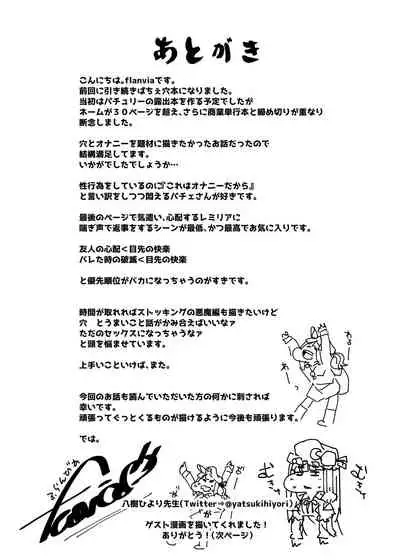 あとがき
こんにちは。flanviaです。
前回に引き続きぱちぇ穴本になりました。
当初はパチュリーの露出本を作る予定でしたが
ネームが30ページを超え、さらに商業単行本と締め切りが重なり
断念しました。
穴とオナニーを題材に描きたかったお話だったので
結構満足してます。
いかがでしたでしょうか…
性行為をしているのに『これはオナニーだから』
と言い訳をしつつ悶えるパチェさんが好きです。
最後のページで気遣い、心配するレミリアに
喘ぎ声で返事をするシーンが最低、かつ最高でお気に入りです。
友人の心配＜目先の快楽
バレた時の破滅＜目先の快楽
と優先順位がバカになっちゃうのがすきです。
時間が取れればストッキングの悪魔編も描きたいけど
穴　とうまいこと話がかみ合えばいいなァ
ただのセックスになっちゃうなァ
と頭を悩ませています。
上手いこといけば、また。
今回のお話も読んでいただいた方の何かに刺されば
幸いです。
頑張ってぐっとくるものが描けるように今後も頑張ります。
では。
ふらんびあ
flanvia
わー
むきゅー
八樹ひより先生(Twitter⇒@yatsukihiyori)
が
ゲスト漫画を描いてくれました！
ありがとう！(次ページ)